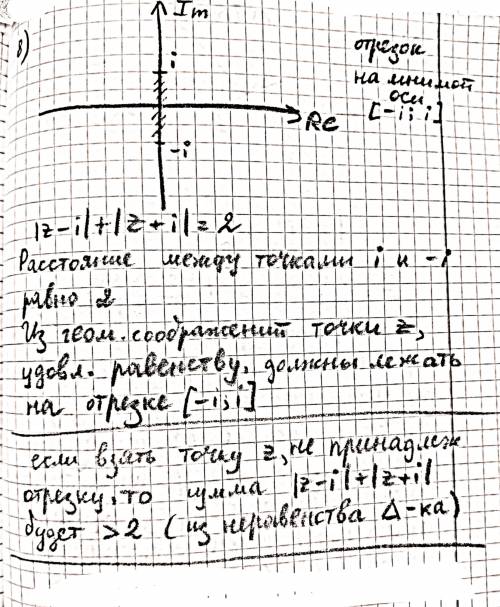 8)
Im
i
Re
-i
отрезок
на мнимой
оси
[-i; i]
|z-i|+|z+i|=2
Расстояние между точками i и -i
равно 2
Из геом. соображений точки z,
удовл. равенству, должны лежать
на отрезке [-i; i]
если взять точку z, не принадлеж
отрезку, то сумма |z-i|+|z+i|
будет >2 (из неравенства Δ-ка)